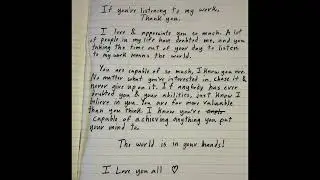 If you're listening to my work,
Thank you.
I love & appreciate you so much. A lot
of people in my life have doubted me, and you
taking the time out of your day to listen
to my work means the world.
You are capable of so much, I know you are.
No matter what you're interested in. Chase it &
never give up on it. If anybody has ever
doubted you & your abilities, just know I
believe in you. You are far more valuable
than you think. I know you're
capable of achieving anything you put
your mind to.
The world is in your hands!
I Love you all ♡